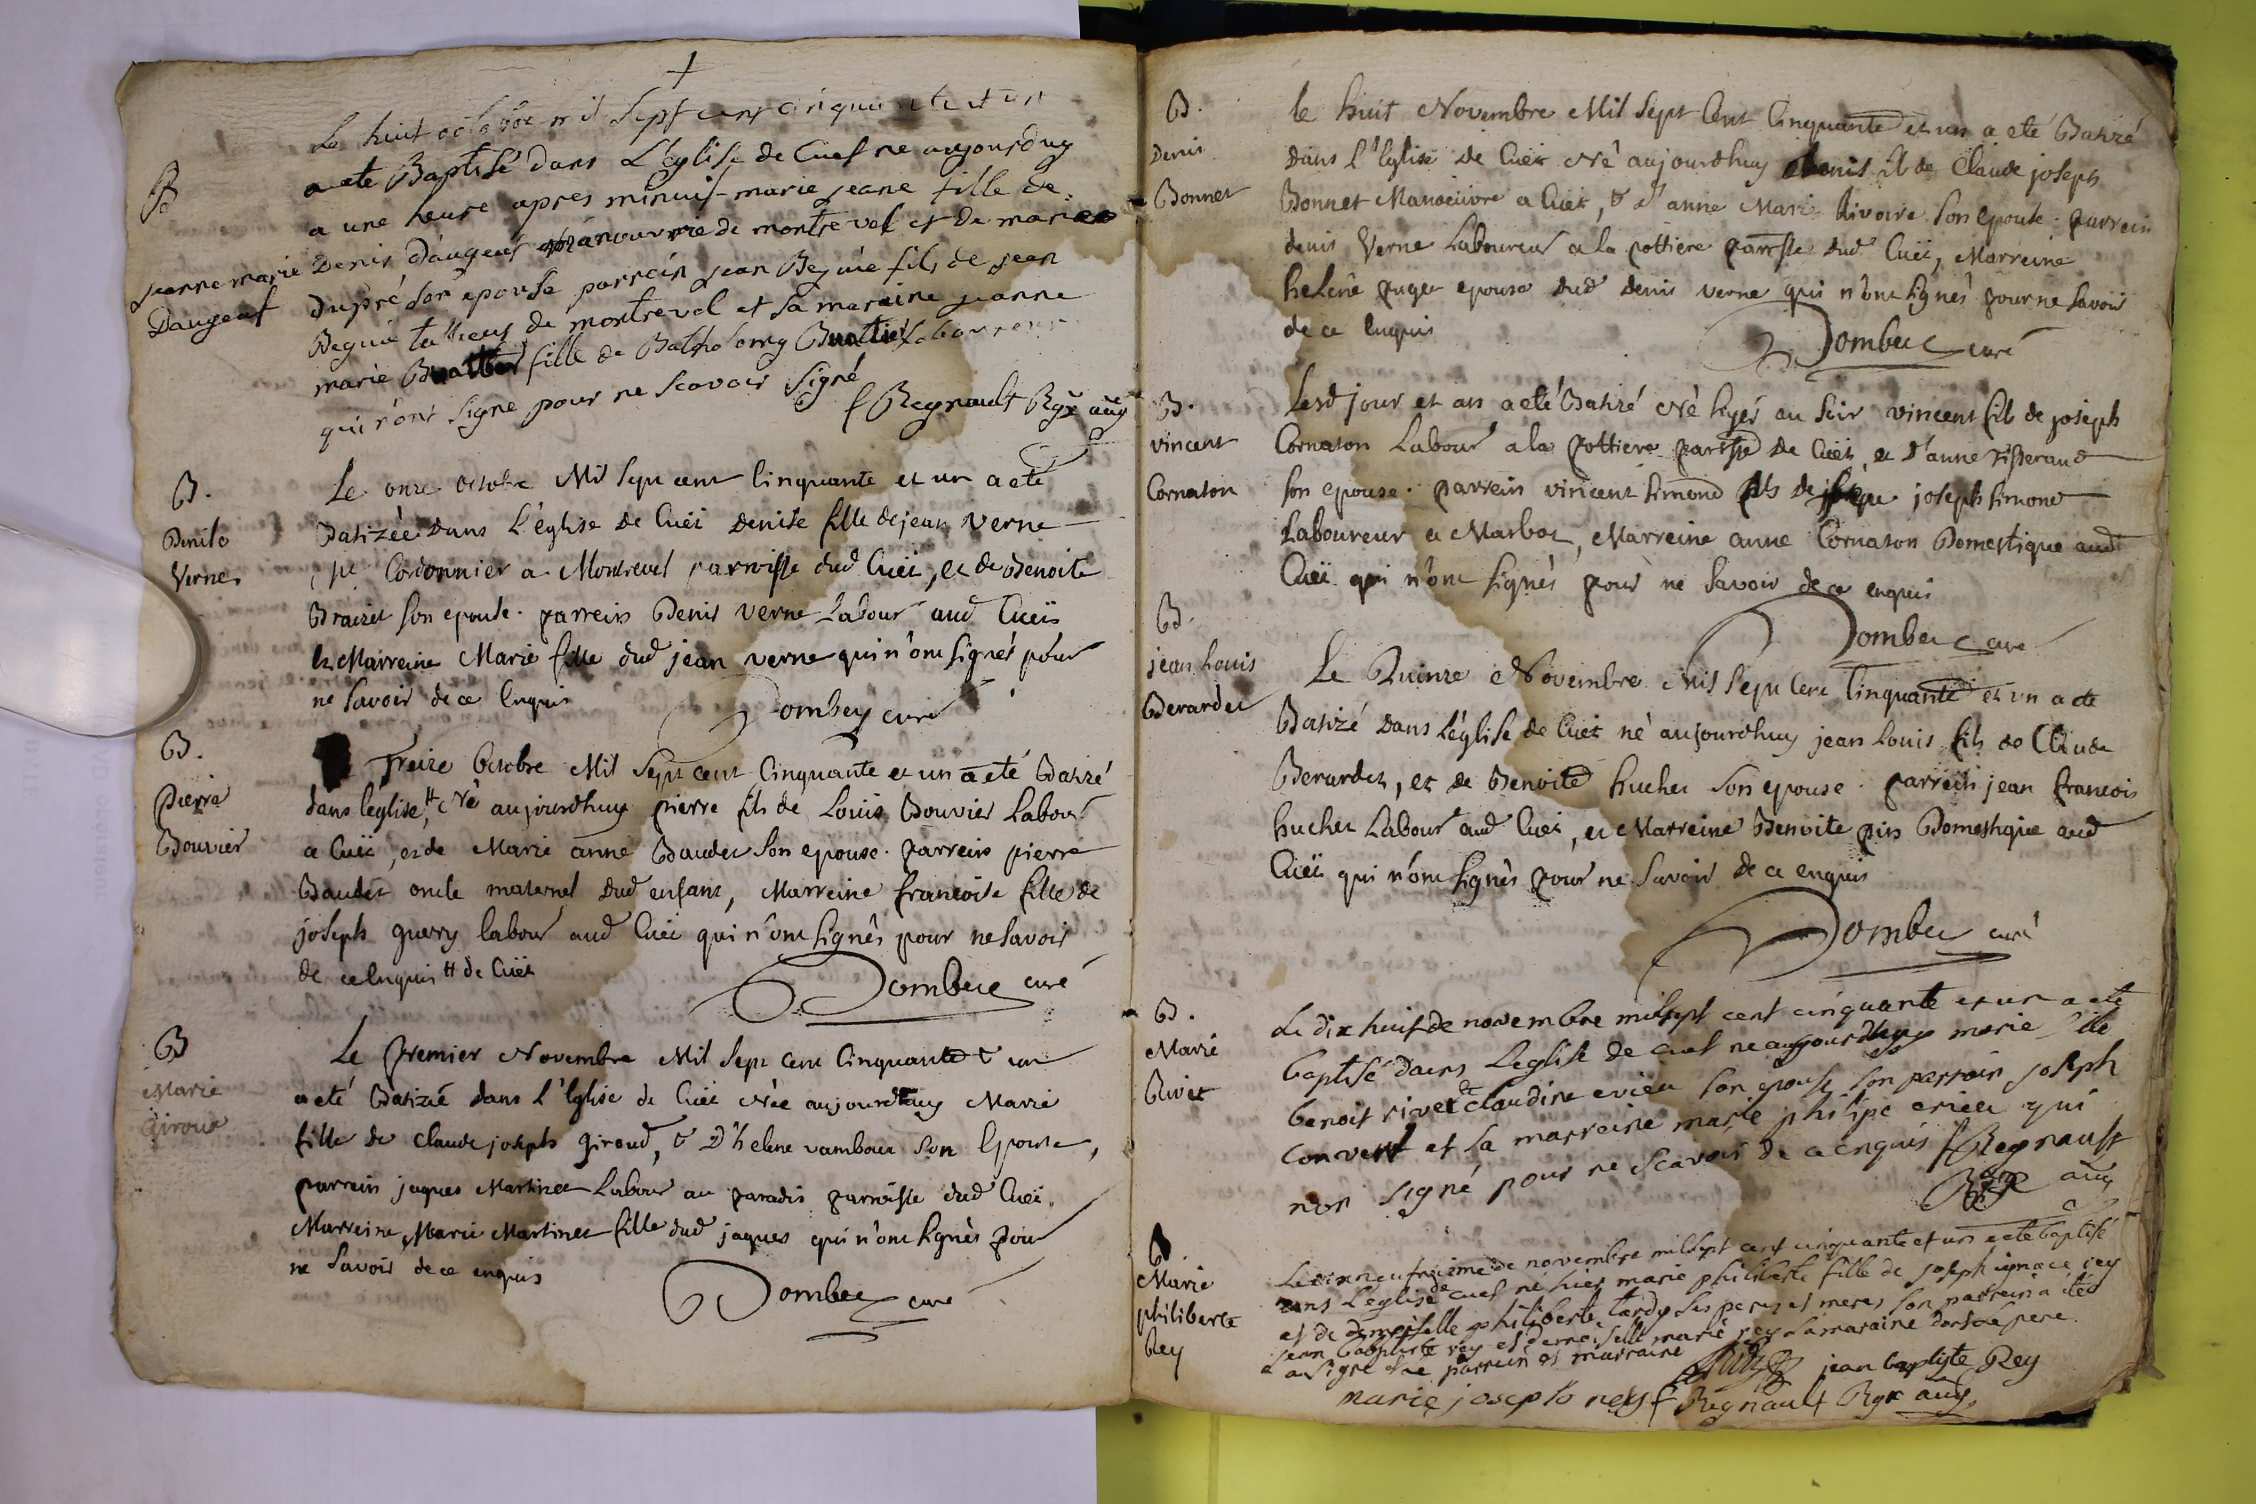 +
Le huit octobre mil sept cent cinquante et un
B
a ete Baptisé dans L'eglise de Cuet ne aujourdhuy
a une heure apres minuit marie jeane fille de
jeanne marie
Daugeus
Denis Daugeus manouvrie de montrevel et de marie
dupré son epouse parrain jean Beguie fils de jean
Beguié tallieur de montrevel et sa maraine jeanne
marie Buattier fille de Batholomy Buattier Laboureur
qui n'ont signe pour ne scavoir signé
f Regnault Rgx aug
B.
Denise
Verne
Le onze octobre Mil Sept cent Cinquante et un a eté
Batizée dans L'église de Cuët denise fille de jean verne
Cordonnier a Montrevel parroisse dud Cuët, et de Benoite
Brazet son epouse. parrein Denis verne Labour aud Cueïs
et Marreine Marie fille dud jean verne qui n'ont signés pour
ne savoir de ce Enquis
Dombey curé
B.
Pierre
Bouvier
Treize Octobre Mil Sept cent Cinquante et un a eté Batizé
dans l'eglise, # Né aujourdhuy pierre fils de Louis Bouvier Labour
a Cuët, et de Marie anne Baudet son epouse. parrein pierre
Baudet oncle maternel dud enfant, Marreine francoise fille de
joseph guery labour aud Cuët qui n'ont signés pour ne savoir
de ce Enquis # de Cuët
Dombey curé
B
Marie
Giroud
Le Premier Novembre Mil Sept cent Cinquante & un
a eté Batizée dans l'Eglise de Cuët Née aujourdhuy Marie
fille de Claude joseph giroud, & D'helene vambour son Epouse,
parrein jaques Martinet Labour au paradis parroisse dud Cuët.
Marreine Marie Martinet fille dud jaques qui n'ont signés pour
ne savoir de ce enquis
Dombey curé
B.
Denis
Bonnet
le huit Novembre Mil Sept Cent Cinquante et un a eté Batizé
dans l'Eglise de Cuët Né aujourdhuy denis fils de Claude joseph
Bonnet Manoeuvre a Cuët, & d'anne Marie Rivoire son epouse. parrein
denis Verne Laboureur a la pottiere parrsse dud Cuët, Marreine
helene puget epouse dud denis verne qui n'ont signés pour ne savoir
de ce Enquis
Dombey curé
B.
vincent
Cornaton
Lesd jour et an a eté Batizé Né hyer au soir vincent fils de joseph
Cornaton Labour a la pottiere parrsse de Cuët, et d'anne Tisserand
son epouse. parrein vincent simond fils de joseph simond
Laboureur a Marboz, Marreine anne Cornaton Domestique aud
Cuët qui n'ont signés pour ne savoir de ce enquis
Dombey curé
B.
jean Louis
Berardet
Le Quinze Novembre Mil Sept Cent Cinquante et un a eté
Batizé dans L'église de Cuët né aujourdhuy jean Louis fils de Claude
Berardet, et de Benoite huchet son epouse. parrein jean francois
huchet Labour aud Cuët, et Marreine Benoite pin Domestique aud
Cuët qui n'ont signés pour ne savoir de ce enquis
Dombey curé
B.
Marie
Rivet
Le dix huit de novembre mil sept cent cinquante et un a eté
baptisé dans L'eglise de cuet ne aujourdhuy marie fille
benoit rivet et claudine son epouse son parrain joseph
convert et sa marreine marie philipe qui
non signé pour ne scavoir de ce enquis f Regnault
Rgx aug
B.
Marie
philiberte
Rey
Le dixneufvieme de novembre mil sept cent cinquante et un a eté baptisé
dans L'eglise de cuet né hier marie philiberte fille de joseph ignace rey
et de demoiselle philiberte tardy ses peres et meres son parrein a iteé
jean baptiste rey et demoiselle marie rey sa maraine dont le pere
a signe et le parrein et marraine
jean baptiste Rey
marie joseph rey f Regnault Rgx aug